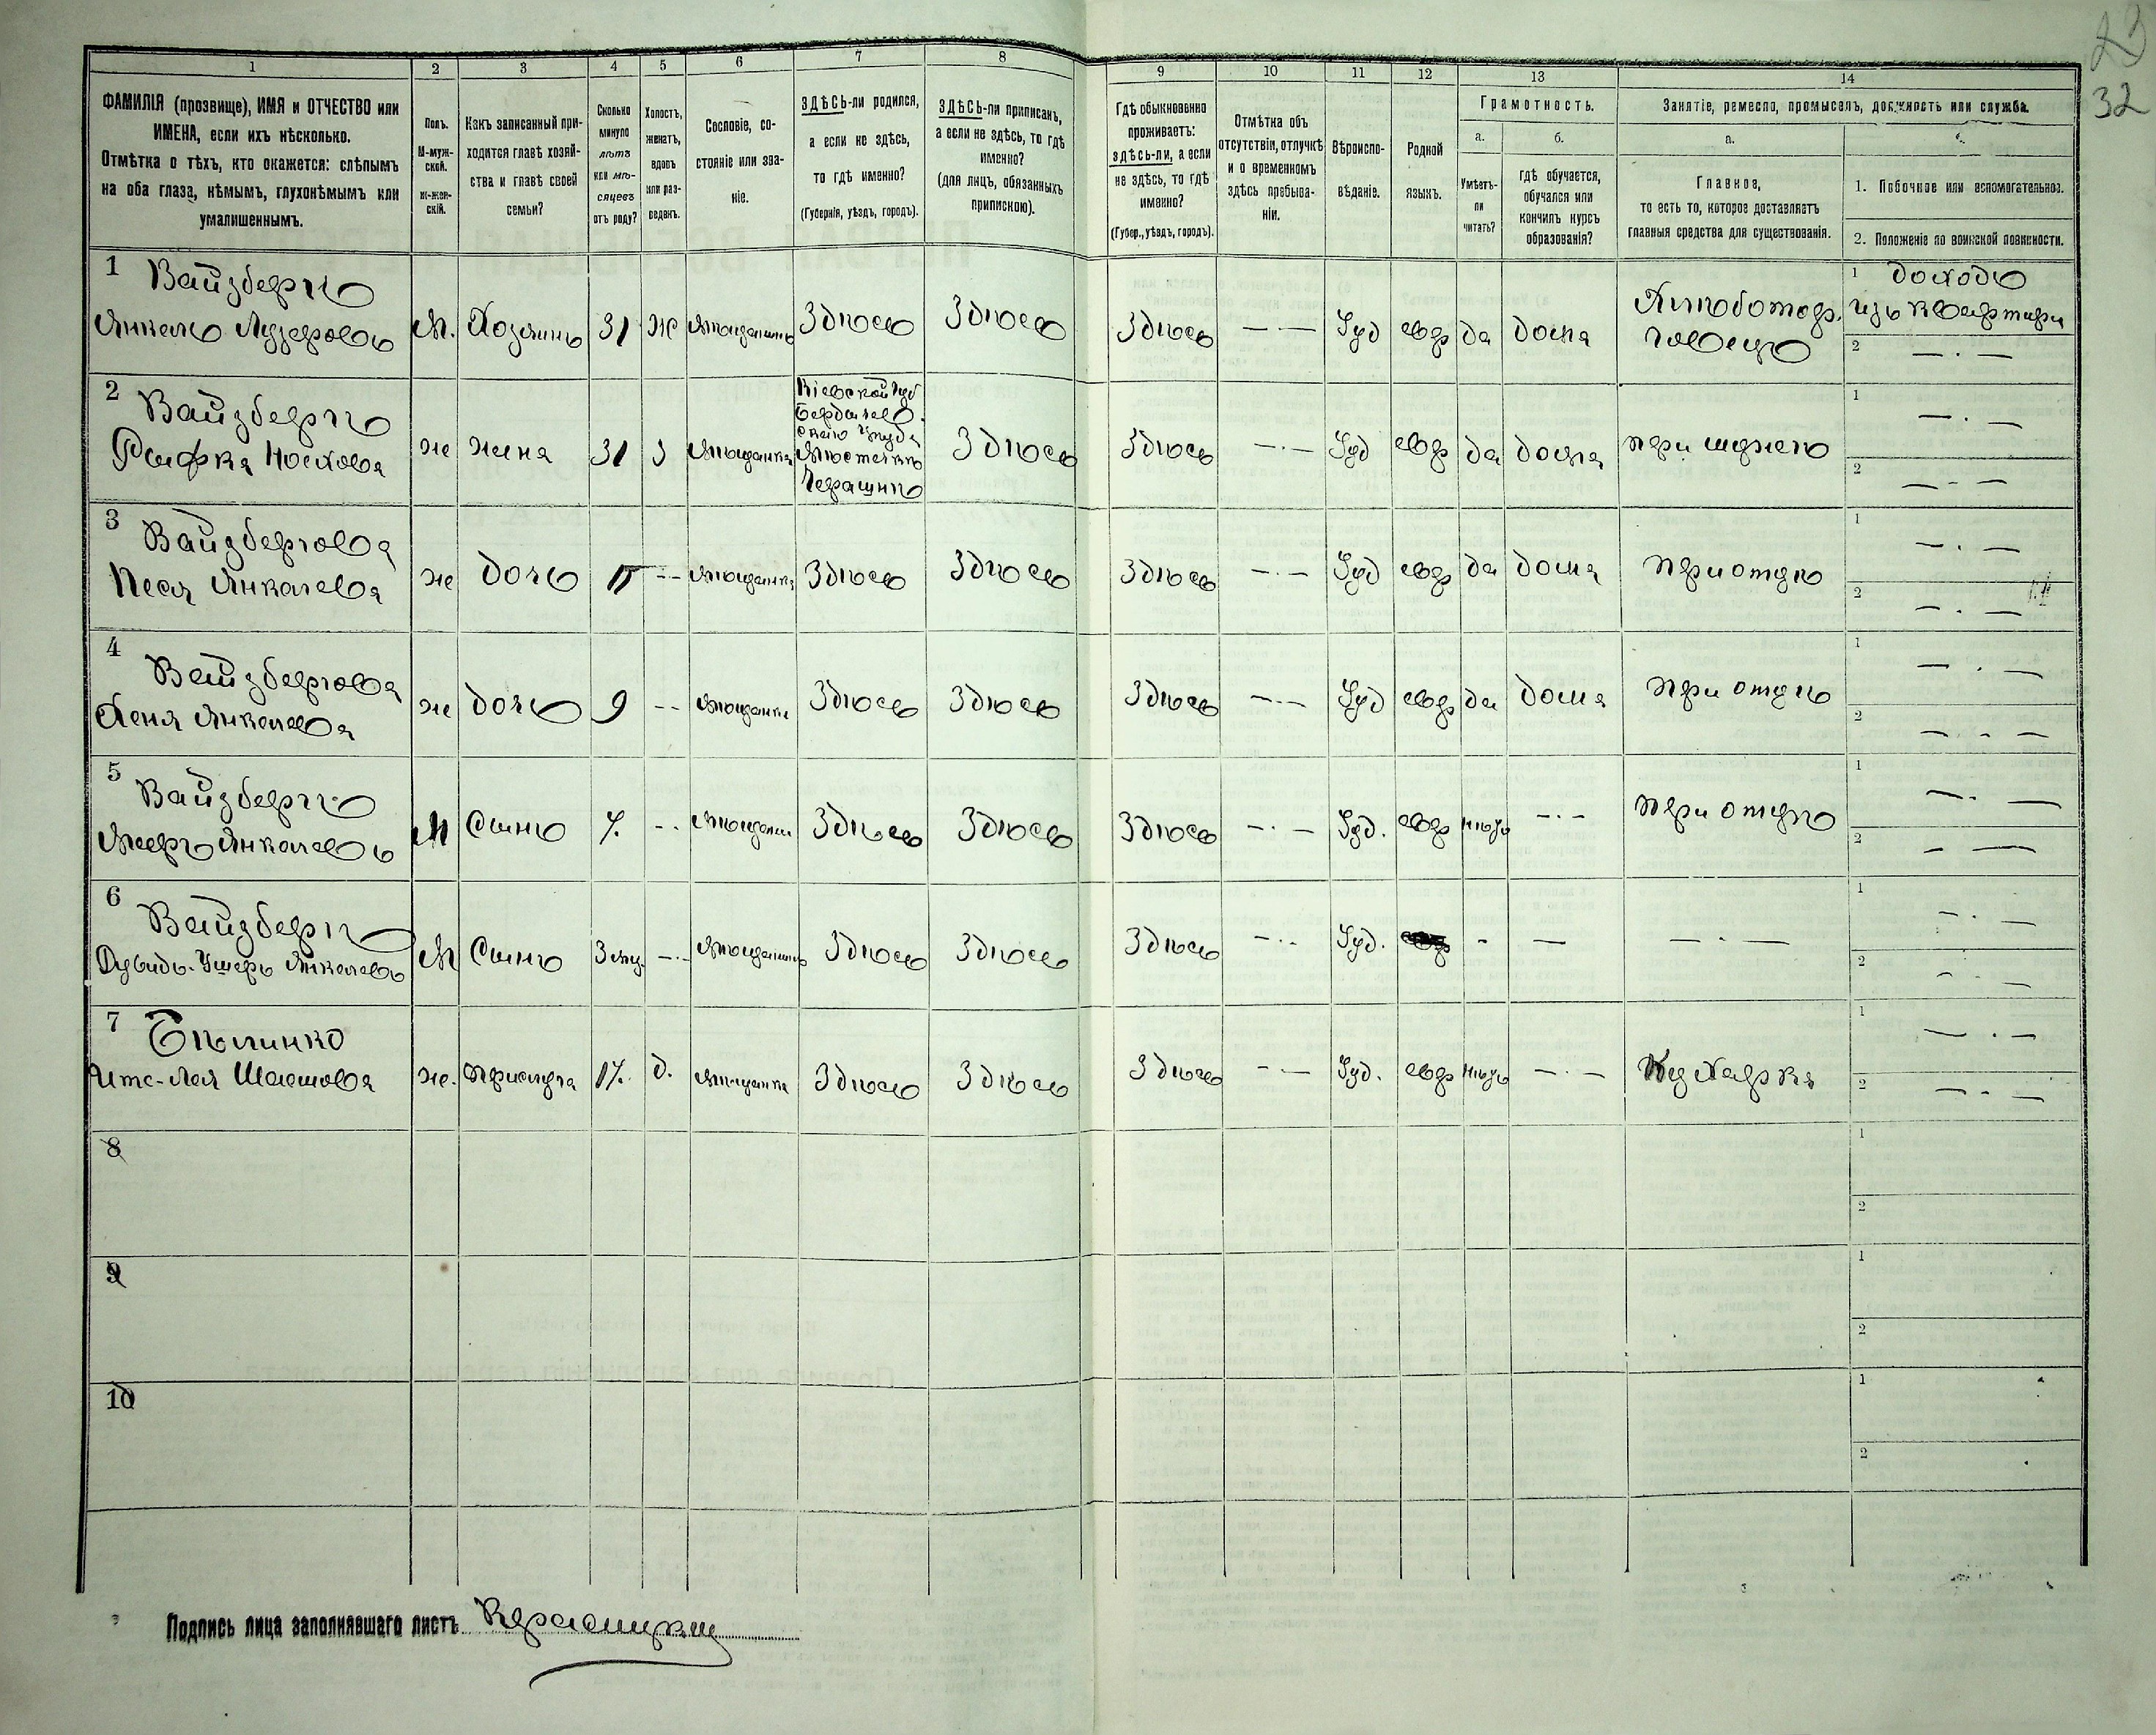 23
32
1 2 3 4 5 6 7 8 9 10 11 12 13 14
ФАМИЛІЯ (прозвище), ИМЯ и ОТЧЕСТВО или
ИМЕНА, если ихъ нѣсколько.
Отмѣтка о тѣхъ, кто окажется: слѣпымъ
на оба глаза, нѣмымъ, глухонѣмымъ или
умалишеннымъ.
Полъ.
М-муж-
ской.
ж-жен-
скій.
Какъ записанный при-
ходится главѣ хозяй-
ства и главѣ своей
семьи?
Сколько
минуло
лѣтъ
или мѣ-
сяцевъ
отъ роду?
Холостъ,
женатъ,
вдовъ
или раз-
веденъ.
Сословіе, со-
стояніе или зва-
ніе.
ЗДѢСЬ-ли родился,
а если не здѣсь,
то гдѣ именно?
(Губернія, уѣздъ, городъ).
ЗДѢСЬ-ли приписанъ,
а если не здѣсь, то гдѣ
именно?
(для лицъ, обязанныхъ
припискою).
Гдѣ обыкновенно
проживаетъ:
здѣсь-ли, а если
не здѣсь, то гдѣ
именно?
(Губер., уѣздъ, городъ).
Отмѣтка объ
отсутствіи, отлучкѣ
и о временномъ
здѣсь пребыва-
ніи.
Вѣроиспо-
вѣданіе.
Родной
языкъ.
Грамотность.
а.
Умѣетъ-
ли
читать?
б.
гдѣ обучается,
обучался или
кончилъ курсъ
образованія?
Занятіе, ремесло, промыселъ, должность или служба.
а.
Главное,
то есть то, которое доставляетъ
главныя средства для существованія.
1. Побочное или вспомогательное.
2. Положеніе по воинской повинности.
1 Вайзбергъ
Янкель Лузеровъ М. Хозяинъ 31 Ж Мѣщанинъ Здѣсь Здѣсь Здѣсь — · — Іуд евр да дома Хлѣботор.
говецъ
1 доходъ
изъ квартиры
2 — · —
2 Вайзбергъ
Рыфка Носхова же жена 31 з Мѣщанка
Кіевской губ
Бердичев.
скаго уѣзда
Мѣстечкѣ
Здѣсь Здѣсь — · — Іуд евр да дома при мужѣ
1 — · —
2 — · —
3 Вайзбергова
Песя Янкелева же дочь 11 - - Мѣщанка Здѣсь Здѣсь Здѣсь — · — Іуд евр да дома при отцѣ
1 — · —
2 — · —
4 Вайзбергова
Хеня Янкелева же дочь 9 - - Мѣщанка Здѣсь Здѣсь Здѣсь — · — Іуд евр да дома при отцѣ
1 — · —
2 — · —
5 Вайзбергъ
Мееръ Янкелевъ М Сынъ 7. - - Мѣщанин Здѣсь Здѣсь Здѣсь — · — Іуд. евр нѣтъ — · — при отцѣ
1 — · —
2 — —
6 Вайзбергъ
Дувидъ-Ушеръ Янкелевъ М Сынъ 3 мѣц. — · — Мѣщанинъ Здѣсь Здѣсь Здѣсь — · — Іуд. - — — · —
1 — · —
2 — · —
7 Бѣлинко
Ита-Лея же. прислуга 17. д. Мѣщанка Здѣсь Здѣсь Здѣсь — · — Іуд. евр нѣтъ — · — Кухарка
1 — · —
2 — · —
8 1
2
9 1
2
10 1
2
Подпись лица заполнявшаго листъ Красицкій